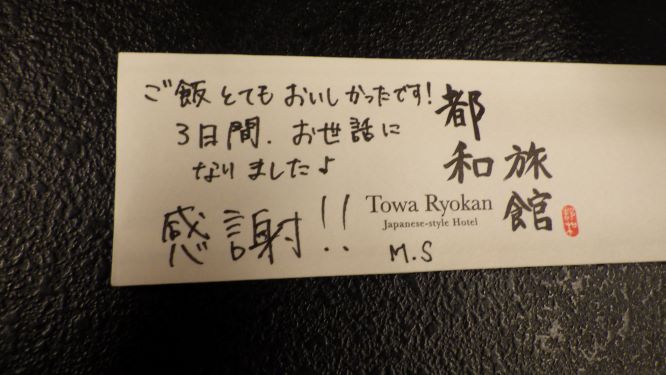 ご飯とてもおいしかったです!
3日間、お世話に
なりました♪
感謝!!
M.S
都和
旅館
Towa Ryokan
Japanese-style Hotel